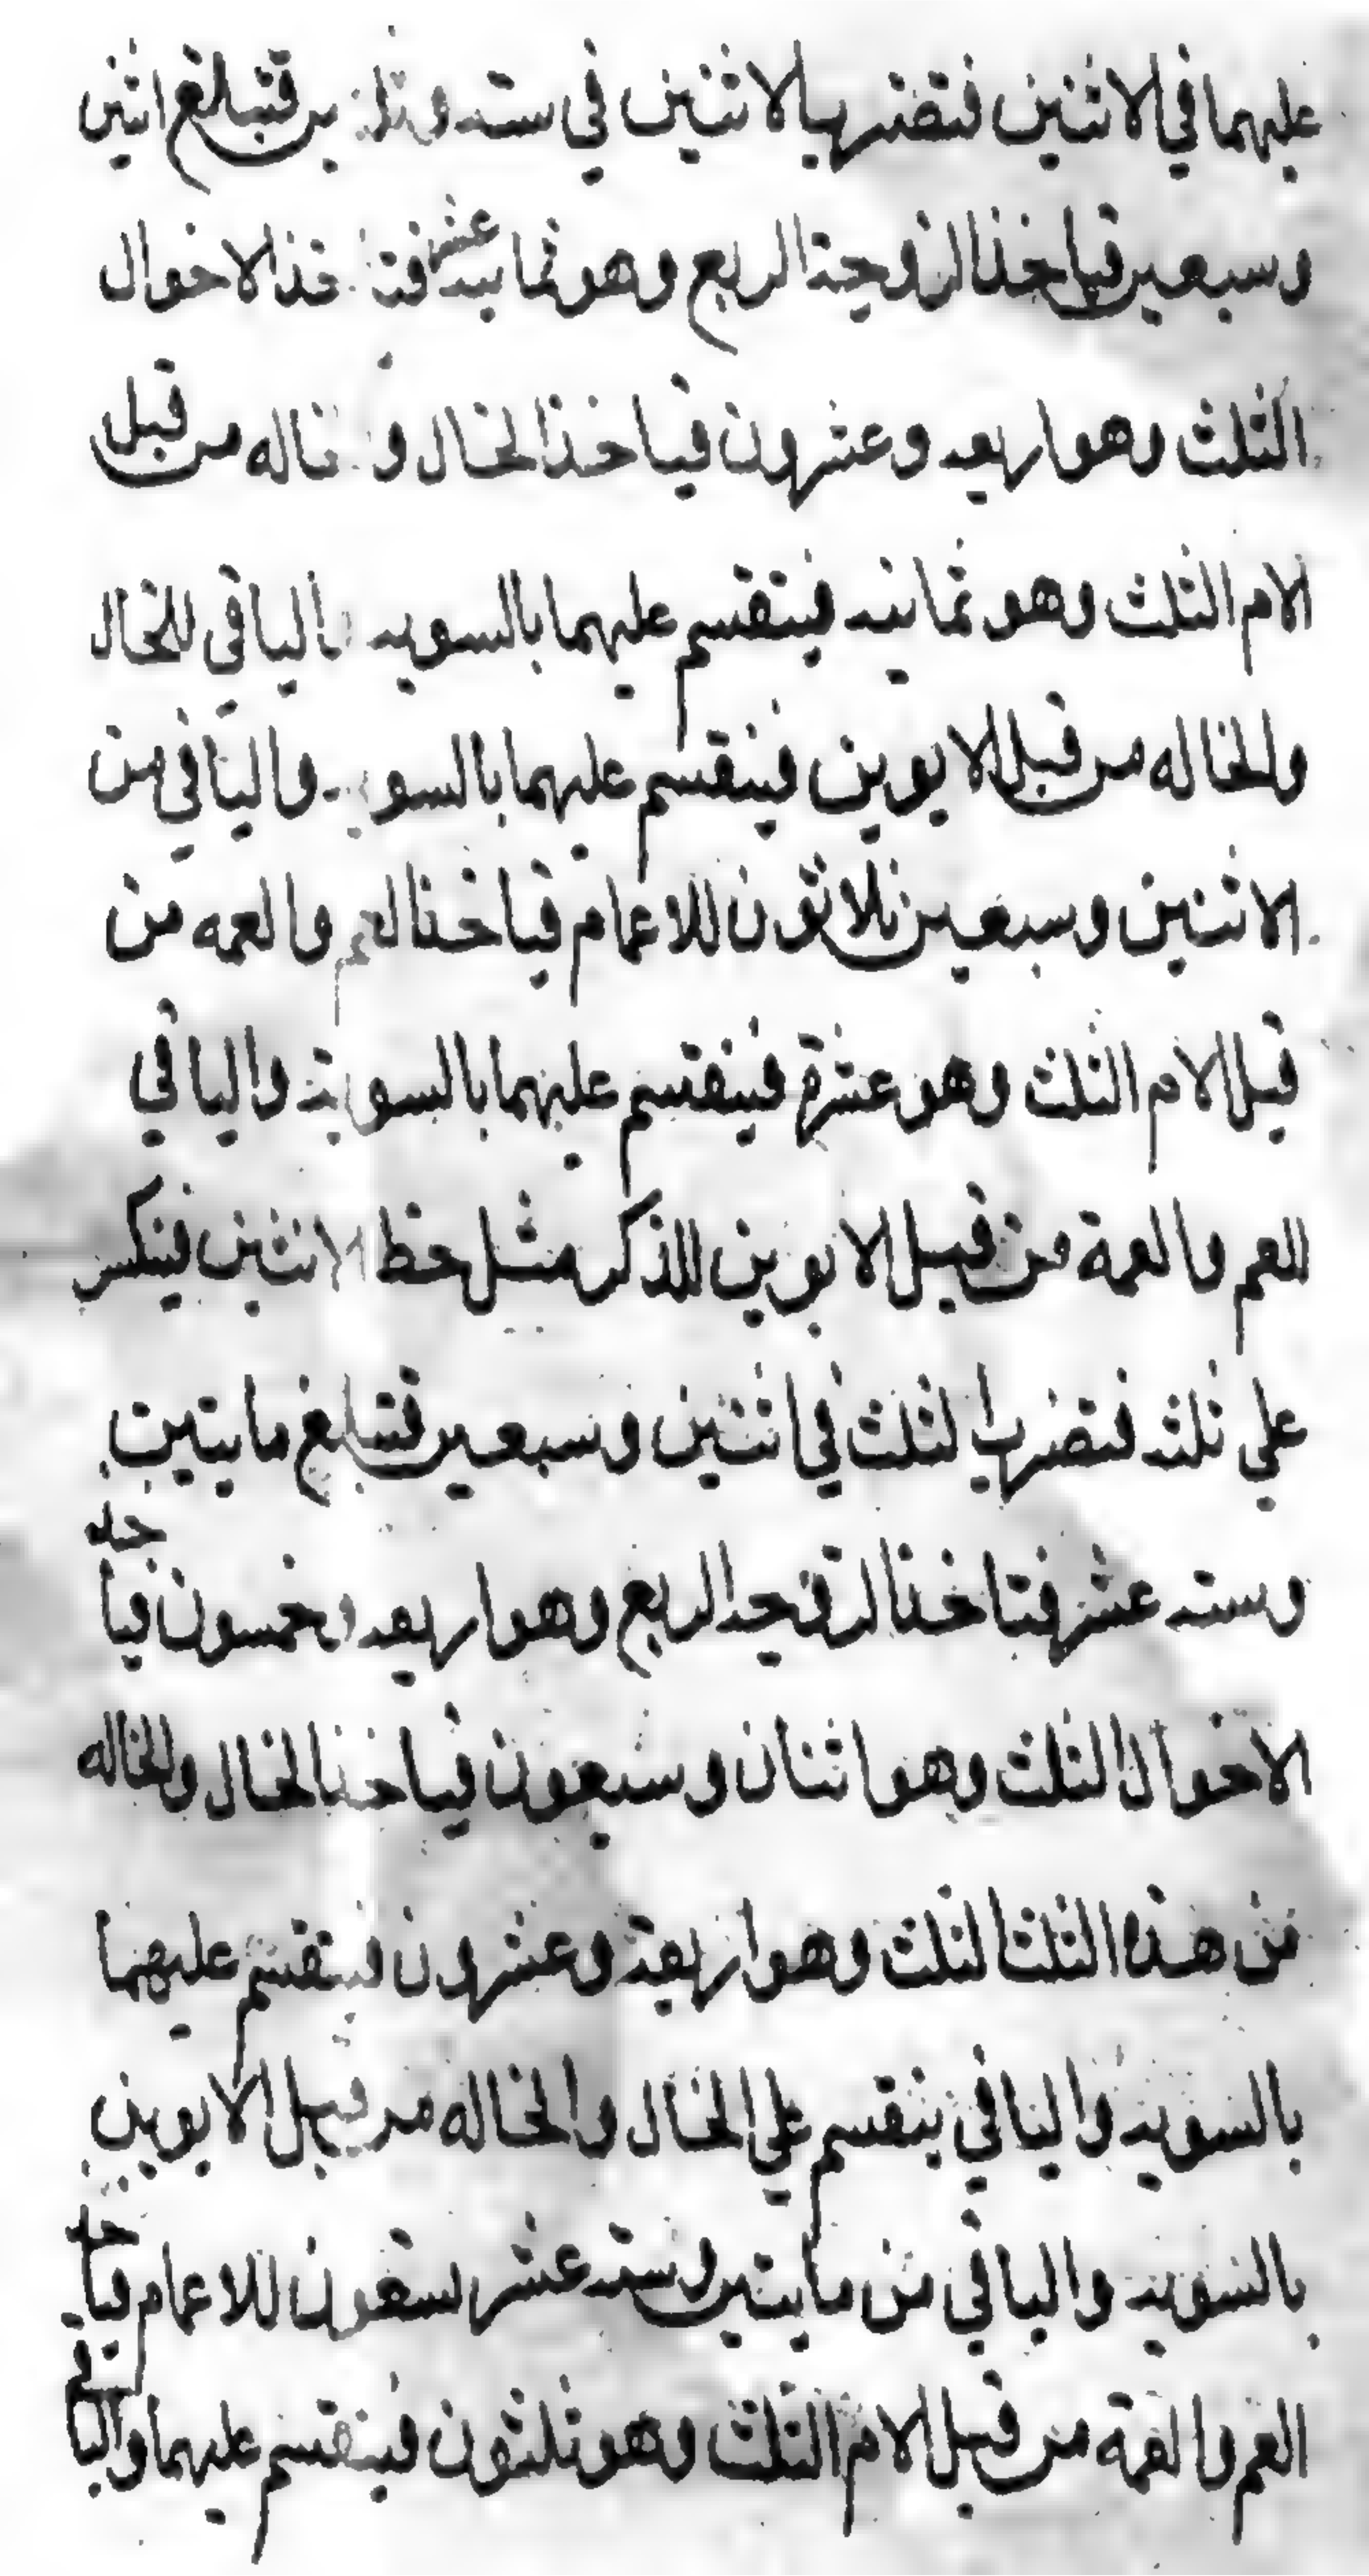 عليهما في الاثنين فتضرب الاثنين في سته وثلاثين فتبلغ اثنين
وسبعين فياخذ الزوجة الربع وهو ثمانيه عشر فتاخذ الاخوال
الثلث وهو اربعه وعشرون فياخذ الخال والخاله من قبل
الام الثلث وهو ثمانيه فينقسم عليهما بالسويه والباقي للخال
والخاله من قبل الابوين فينقسم عليهما بالسويه والباقي من
الاثنين وسبعين ثلاثون للاعمام فياخذ العم والعمه من
قبل الام الثلث وهو عشرة فينقسم عليهما بالسوية والباقي
للعم والعمة من قبل الابوين للذكر مثل حظ الانثين فينكسر
علي ثلثه فتضرب الثلث في اثنين وسبعين فتبلغ مايتين
وسته عشر فتاخذ الزوجه الربع وهو اربعه وخمسون فياخذ
الاخوال الثلث وهو اثنان وسبعون فياخذ الخال والخاله
من هذا الثلث الثلث وهو اربعة وعشرون فينقسم عليهما
بالسويه والباقي ينقسم علي الخال والخاله من قبل الابوين
بالسويه والباقي من مايتين وسته عشر تسعون للاعمام فياخذ
العم والعمة من قبل الام الثلث وهو ثلثون فينقسم عليهما والباقي